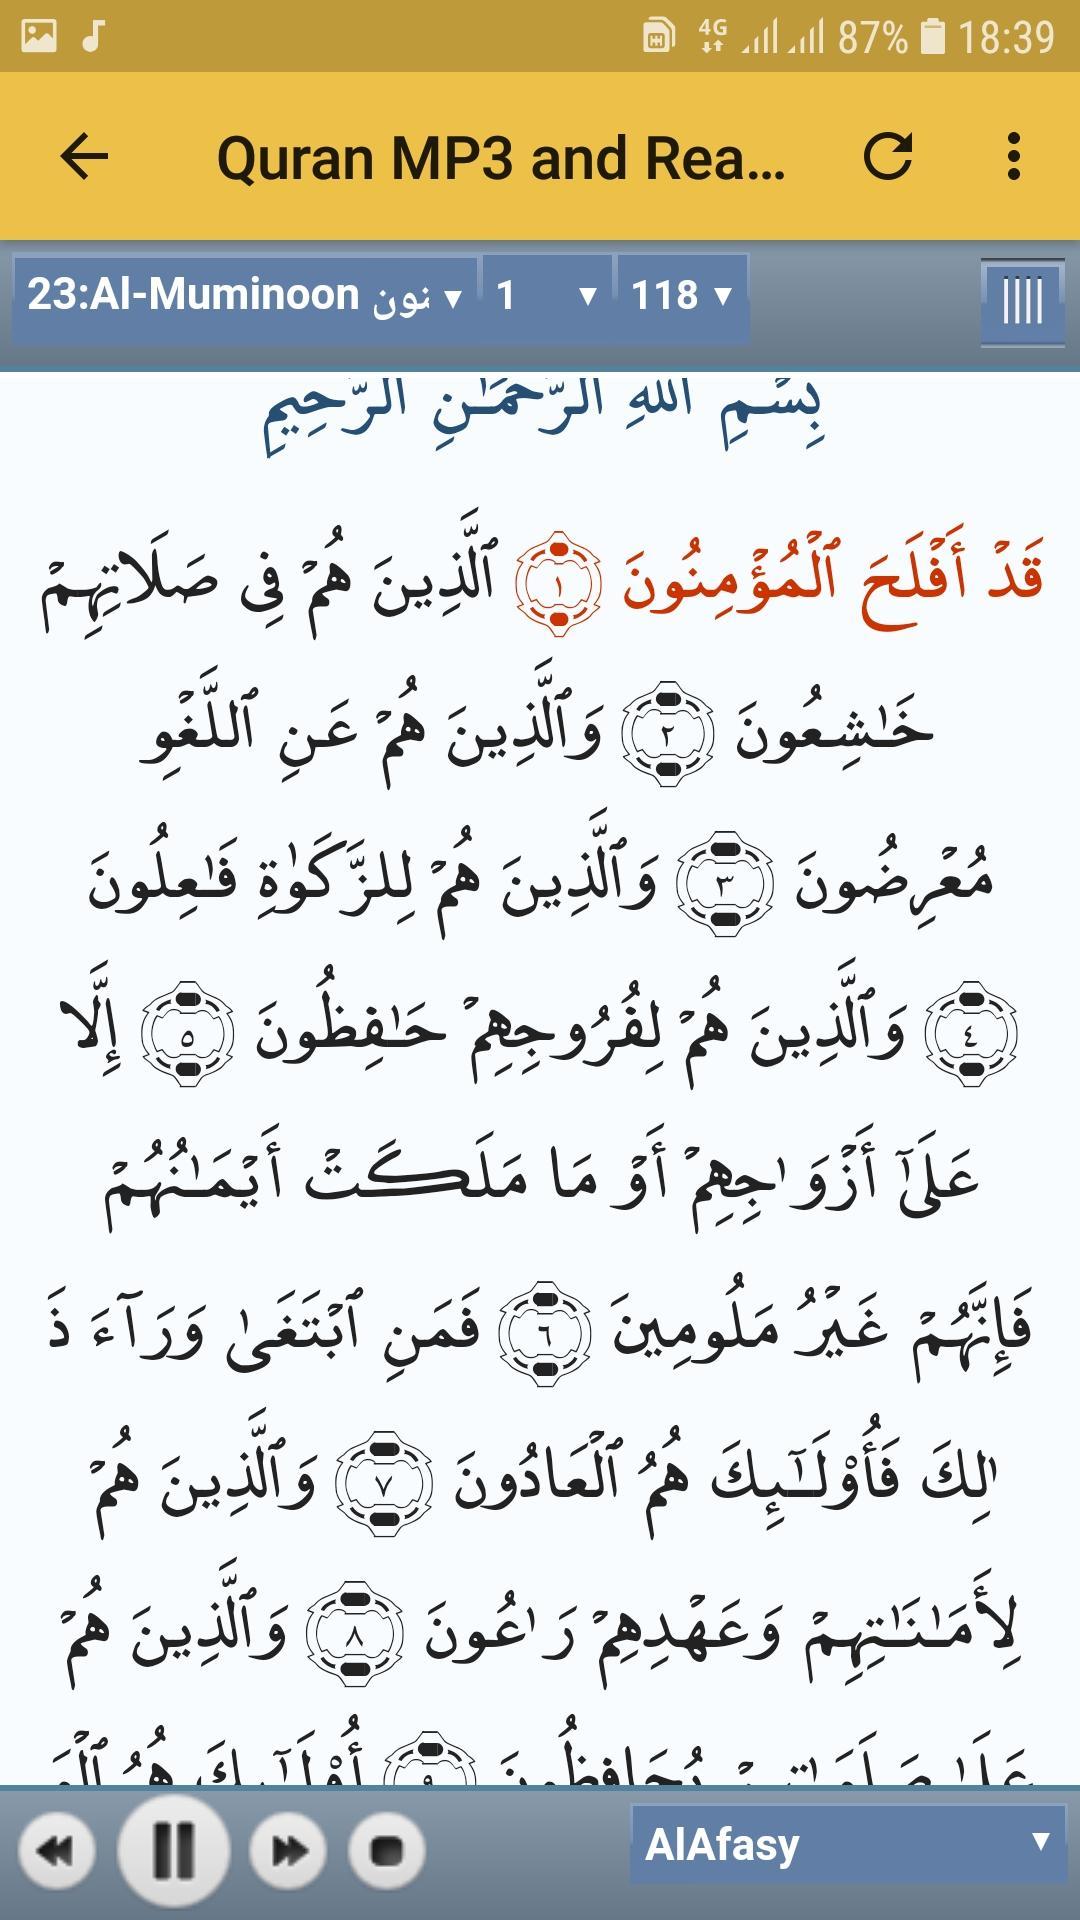 4G 87% 18:39
Quran MP3 and Rea...
23:Al-Muminoon نون 1 118
بِسْمِ ٱللَّهِ ٱلرَّحْمَـٰنِ ٱلرَّحِيمِ
قَدْ أَفْلَحَ ٱلْمُؤْمِنُونَ ١ ٱلَّذِينَ هُمْ فِى صَلَاتِهِمْ
خَـٰشِعُونَ ٢ وَٱلَّذِينَ هُمْ عَنِ ٱللَّغْوِ
مُعْرِضُونَ ٣ وَٱلَّذِينَ هُمْ لِلزَّكَوٰةِ فَـٰعِلُونَ
٤ وَٱلَّذِينَ هُمْ لِفُرُوجِهِمْ حَـٰفِظُونَ ٥ إِلَّا
عَلَىٰٓ أَزْوَٰجِهِمْ أَوْ مَا مَلَكَتْ أَيْمَـٰنُهُمْ
فَإِنَّهُمْ غَيْرُ مَلُومِينَ ٦ فَمَنِ ٱبْتَغَىٰ وَرَآءَ ذَ
ٰلِكَ فَأُو۟لَـٰٓئِكَ هُمُ ٱلْعَادُونَ ٧ وَٱلَّذِينَ هُمْ
لِأَمَـٰنَـٰتِهِمْ وَعَهْدِهِمْ رَٰعُونَ ٨ وَٱلَّذِينَ هُمْ
عَلَىٰ صَلَوَٰتِهِمْ يُحَافِظُونَ ٩ أُو۟لَـٰٓئِكَ هُمُ
AlAfasy